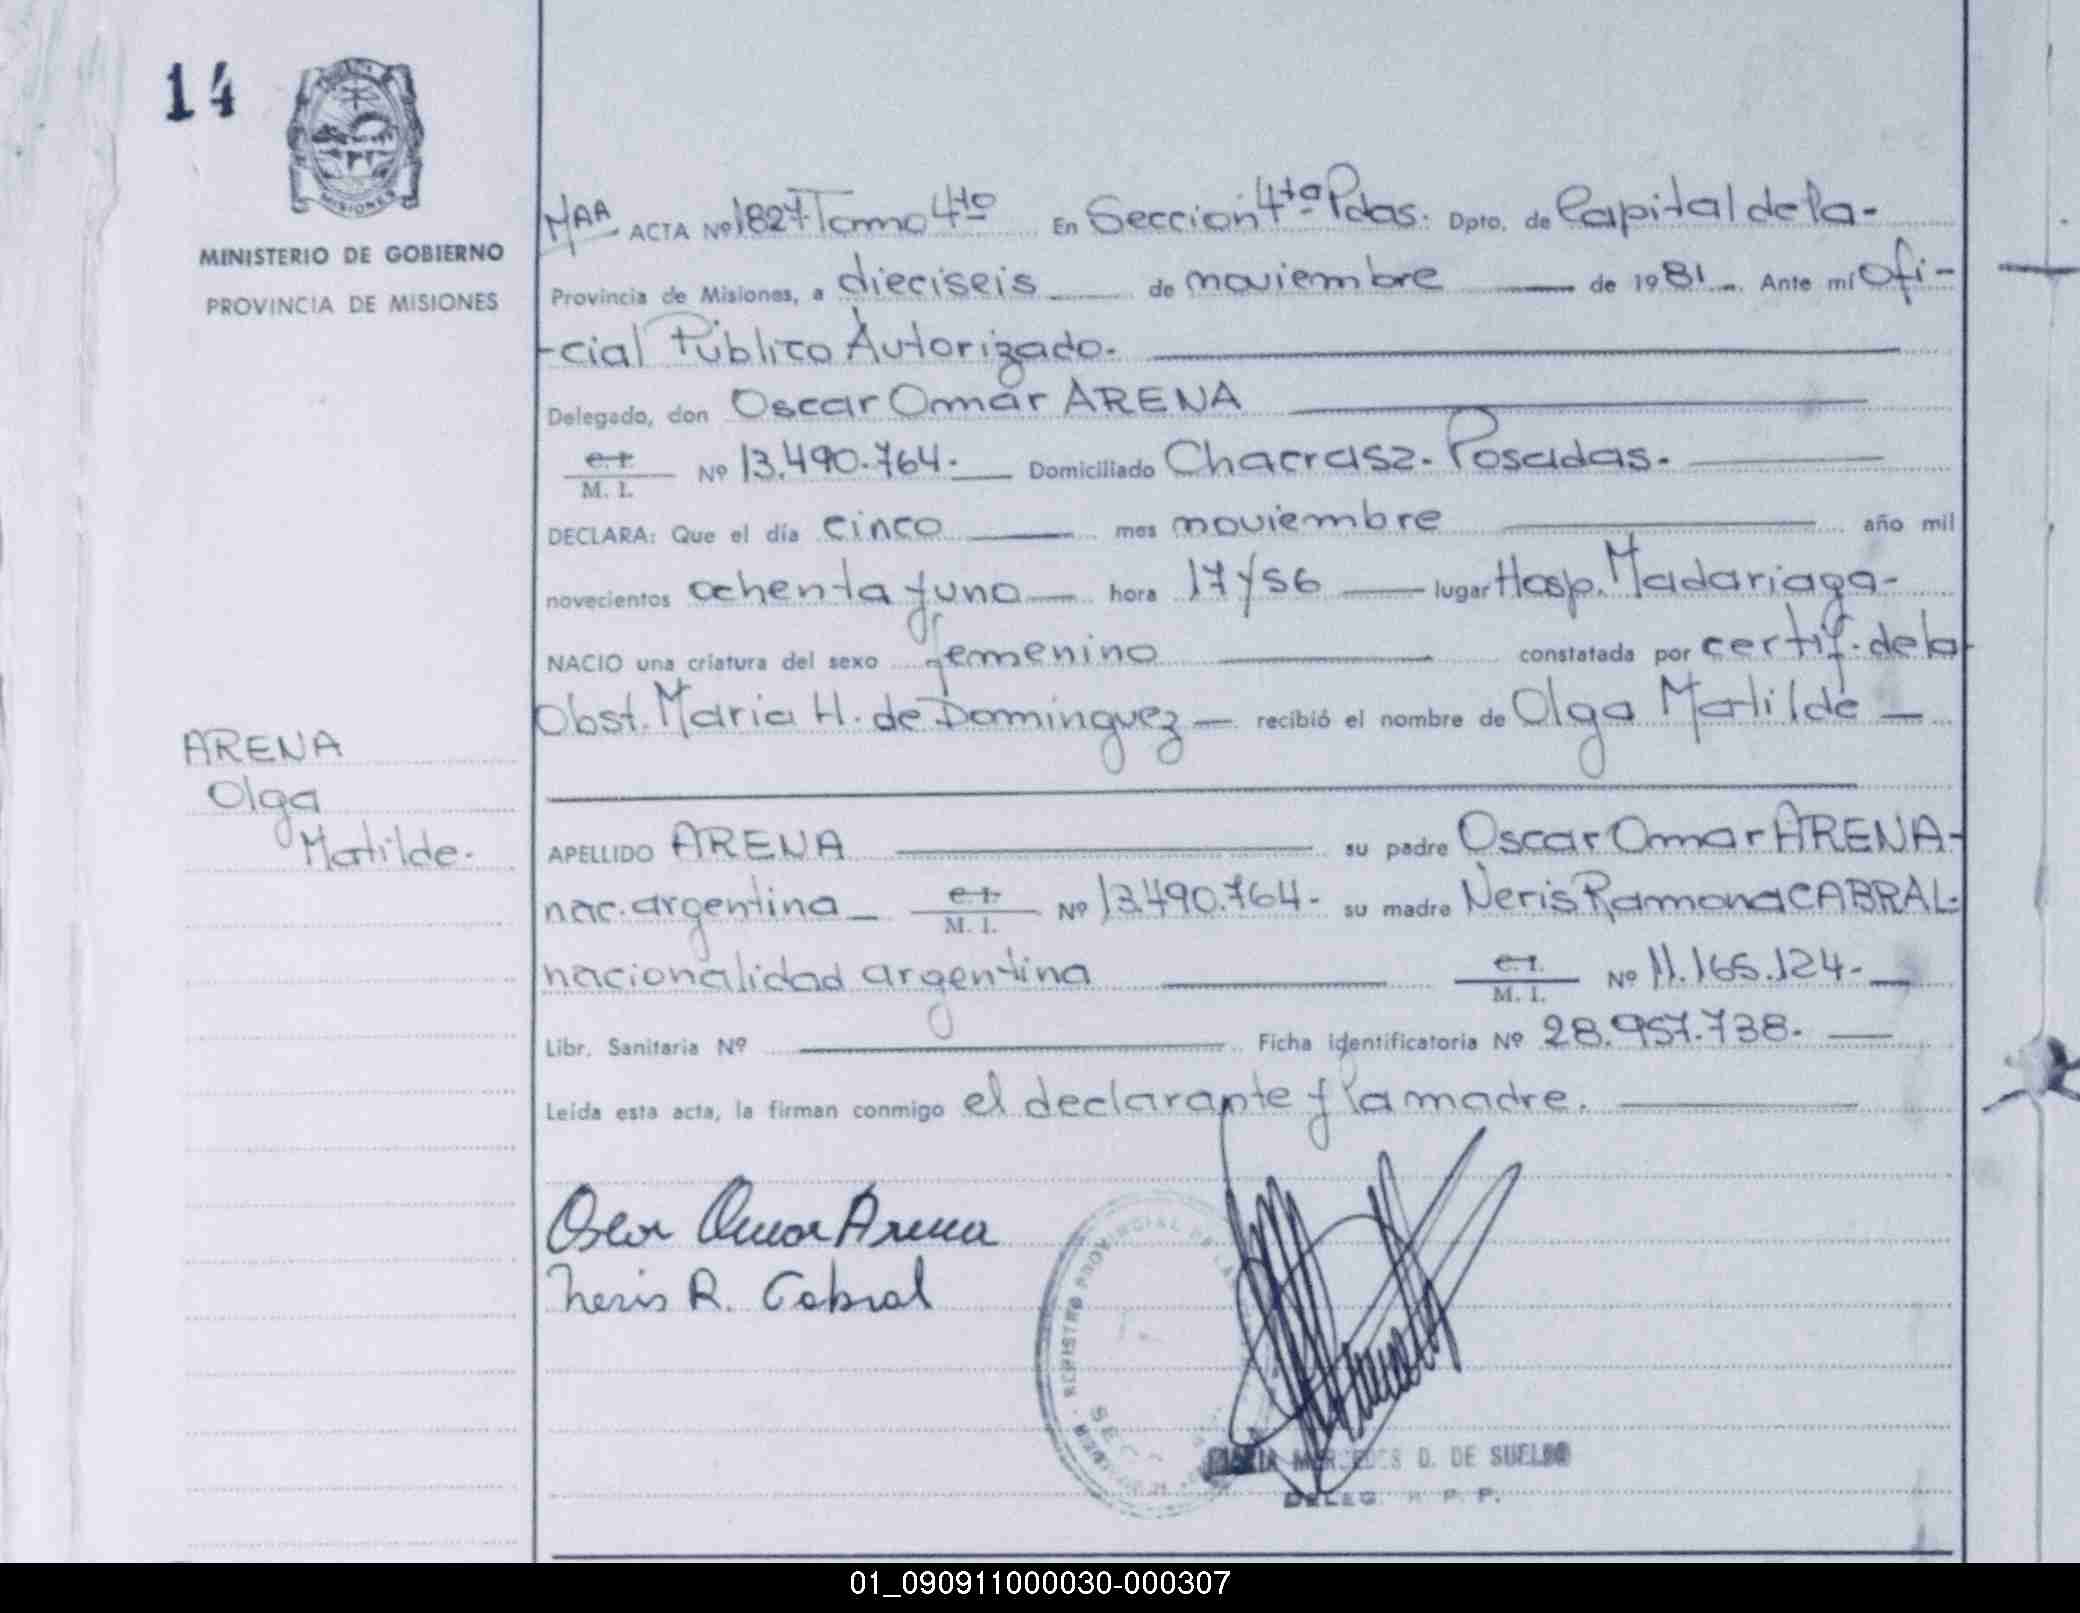 14
MISIONES
MINISTERIO DE GOBIERNO
PROVINCIA DE MISIONES
MAA ACTA Nº 1827 Tomo 4to En Sección 4ta Pdas. Dpto. de Capital de la-
Provincia de Misiones, a dieciseis de noviembre de 1981. Ante mí Ofi-
-cial Público Autorizado.
Delegado, don Oscar Omar ARENA
C.I. M. I. Nº 13.490.764. Domiciliado Chacra 52. Posadas.
DECLARA: Que el día cinco mes noviembre año mil
novecientos ochenta y uno hora 17 y 56 lugar Hosp. Madariaga-
NACIO una criatura del sexo femenino constatada por certif. de la
Obst. Maria H. de Dominguez recibió el nombre de Olga Matilde
ARENA
Olga
Matilde.
APELLIDO ARENA su padre Oscar Omar ARENA-
nac. argentina C.I. M. I. Nº 13.490.764- su madre Neris Ramona CABRAL.
nacionalidad argentina C.I. M. I. Nº 11.165.124-
Libr. Sanitaria Nº Ficha identificatoria Nº 28.957.738.
Leída esta acta, la firman conmigo el declarante y la madre.
Oscar Omar Arena
Neris R. Cabral
REGISTRO PROVINCIAL DE LAS
SECC
MARIA MERCEDES D. DE SUELDO
DELEG. R. P. P.
01_090911000030-000307